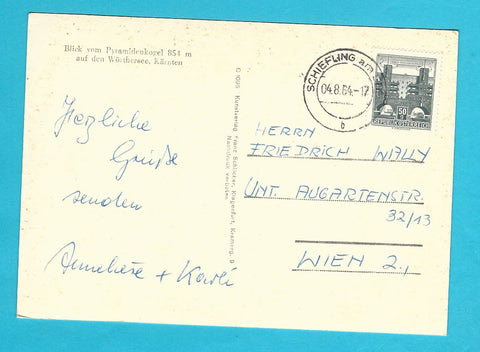 Blick vom Pyramidenkogel 854 m
auf den Wörthersee, Kärnten
Herzliche
Grüße
senden
Anneliese + Karli
© 1095 Kunstverlag Franz Schilcher, Klagenfurt, Kramerg. 9
Nachdruck verboten
SCHIEFLING am
04.8.64.-17
b
50
REPUBLIK ÖSTERREICH
HERRN
FRIEDRICH WALLY
UNT. AUGARTENSTR.
32/13
WIEN 2.,